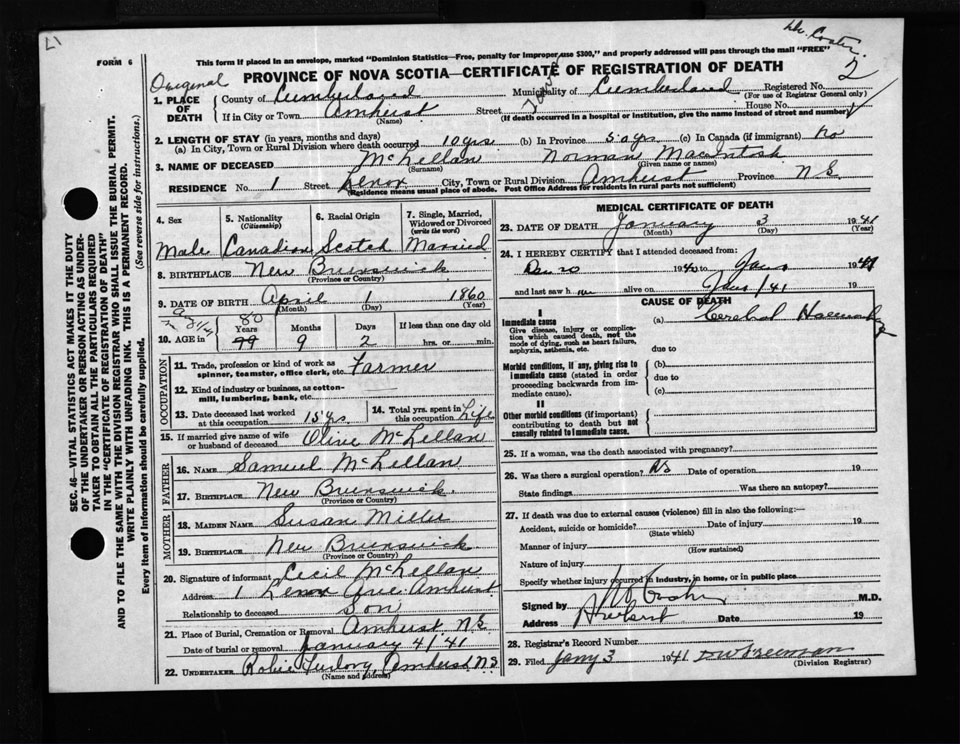 Dr. Coster.
2
FORM 6
This form if placed in an envelope, marked "Dominion Statistics—Free, penalty for improper use $300," and properly addressed will pass through the mail "FREE"
Original
PROVINCE OF NOVA SCOTIA—CERTIFICATE OF REGISTRATION OF DEATH
1. PLACE OF DEATH
County of Cumberland Municipality of Cumberland Registered No.
(For use of Registrar General only)
If in City or Town Amherst Street Town House No.
(Name) (If death occurred in a hospital or institution, give the name instead of street and number)
2. LENGTH OF STAY (in years, months and days)
(a) In City, Town or Rural Division where death occurred 10 yrs (b) In Province 50 yrs (c) In Canada (if immigrant) no
3. NAME OF DECEASED McLellan Norman MacIntosh
(Surname) (Given name or names)
RESIDENCE No. 1 Street Lenox City, Town or Rural Division Amherst Province N S
(Residence means usual place of abode. Post Office Address for residents in rural parts not sufficient)
4. Sex
Male
5. Nationality (Citizenship)
Canadian
6. Racial Origin
Scotch
7. Single, Married, Widowed or Divorced (write the word)
Married
8. BIRTHPLACE New Brunswick
(Province or Country)
9. DATE OF BIRTH April 1 1860
(Month) (Day) (Year)
10. AGE in 80 Years 9 Months 2 Days If less than one day old
hrs. or min.
OCCUPATION
11. Trade, profession or kind of work as spinner, teamster, office clerk, etc. Farmer
12. Kind of industry or business, as cotton-mill, lumbering, bank, etc.
13. Date deceased last worked at this occupation 15 yrs.
14. Total yrs. spent in this occupation Life
15. If married give name of wife or husband of deceased Olive McLellan
FATHER
16. NAME Samuel McLellan
17. BIRTHPLACE New Brunswick.
(Province or Country)
MOTHER
18. MAIDEN NAME Susan Miller
19. BIRTHPLACE New Brunswick
(Province or Country)
20. Signature of informant Cecil McLellan
Address 1 Lenox Ave Amherst
Relationship to deceased Son
21. Place of Burial, Cremation or Removal Amherst N S
Date of burial or removal January 4/41
22. UNDERTAKER Robie Furlong, Amherst N S
(Name and address)
MEDICAL CERTIFICATE OF DEATH
23. DATE OF DEATH January 3 1941
(Month) (Day) (Year)
24. I HEREBY CERTIFY that I attended deceased from:
Dec 20 1940 to Jan 1941
and last saw h im alive on Jan 1/41 19
CAUSE OF DEATH
I
Immediate cause
Give disease, injury or complication which caused death, not the mode of dying, such as heart failure, asphyxia, asthenia, etc.
(a) Cerebral
due to
Morbid conditions, if any, giving rise to immediate cause (stated in order proceeding backwards from immediate cause).
(b)
due to
(c)
II
Other morbid conditions (if important) contributing to death but not causally related to immediate cause.
25. If a woman, was the death associated with pregnancy?
26. Was there a surgical operation? No Date of operation 19
State findings Was there an autopsy?
27. If death was due to external causes (violence) fill in also the following:—
Accident, suicide or homicide? Date of injury 19
(State which)
Manner of injury
(How sustained)
Nature of injury
Specify whether injury occurred in industry, in home, or in public place
Signed by M.D.
Address Date 19
28. Registrar's Record Number
29. Filed Jany 3 1941 D W Freeman
(Division Registrar)
SEC. 46—VITAL STATISTICS ACT MAKES IT THE DUTY
OF THE UNDERTAKER OR PERSON ACTING AS UNDER-
TAKER TO OBTAIN ALL THE PARTICULARS REQUIRED
IN THE "CERTIFICATE OF REGISTRATION OF DEATH"
AND TO FILE THE SAME WITH THE DIVISION REGISTRAR WHO SHALL ISSUE THE BURIAL PERMIT.
WRITE PLAINLY WITH UNFADING INK. THIS IS A PERMANENT RECORD.
Every item of Information should be carefully supplied. (See reverse side for instructions.)